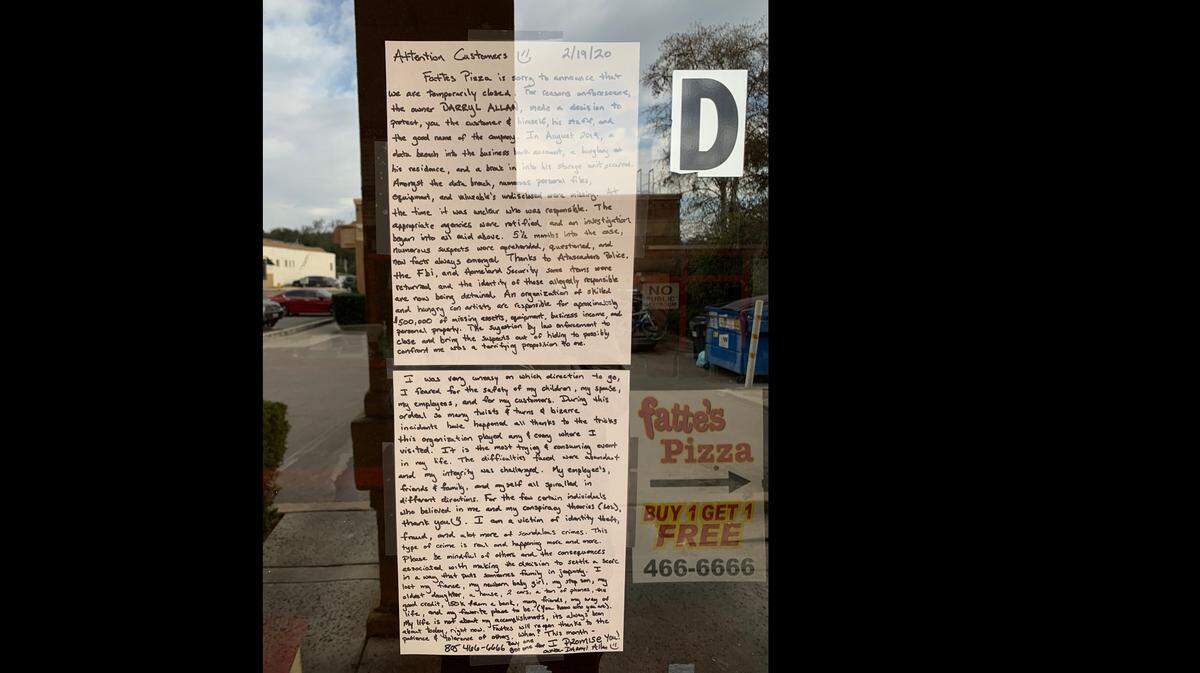 Attention Customers 2/19/20
Fattes Pizza is sorry to announce that
we are temporarily closed. For reasons unforeseene,
the owner DARRYL ALLAN, made a decision to
protect, you the customer & himself, his staff, and
the good name of the company. In August 2019, a
data breach into the business bank account, a burglary at
his residence, and a break in into his storage unit, occurred.
Amongst the data brach, numerous personal files,
equipment, and valuable's undisclosed were missing. At
the time it was unclear who was responsible. The
appropriate agencies were notified and an investigation
began into all said above. 5½ months into the case,
numerous suspects were aprehended, questioned, and
new facts always emerged. Thanks to Atascadero Police,
the Fbi, and Homeland Security some items were
returned and the identity of those allegedly responsible
are now being detained. An organization of skilled
and hungry con artists are responsible for aproximately
$500,000 of missing assetts, equipment, business income, and
personal property. The sugestion by law enforcement to
close and bring the suspects out of hiding to possibly
confront me was a terrifying proposition to me.
I was very uneasy on which direction to go,
I feared for the safety of my children, my spouse,
my employees, and for my customers. During this
ordeal so many twists & turns & bizarre
incidents have happened all thanks to the tricks
this organization played any & every where I
visited. It is the most trying & consuming event
in my life. The difficulties faced were abundant
and my integrity was challenged. My employee's,
friends & family, and myself all spiralled in
different directions. For the few certain individuals
who believed in me and my conspiracy theories (LOL),
thank you. I am a victim of identity theft,
fraud, and alot more of scandalous crimes. This
type of crime is real and happening more and more.
Please be mindful of others and the consequences
associated with making the decision to settle a score
in a way that puts someones family in jeopardy. I
lost my fiance, my newborn baby girl, my step son, my
oldest daughter, a house, 2 cars, a ton of phones, the
good credit, 150k from a bank, many friends, my way of
life, and my favorite place to be. (You know who you are).
My life is not about my accomplishments, its always been
about today, right now. Fattes will reopen thanks to the
patience & tolerance of others. When? This month -
805 466-6666 Buy one Get one for I PROMISE YOU!
owner Darryl Allan
D
NO
fatte's
Pizza
BUY 1 GET 1
FREE
466-6666